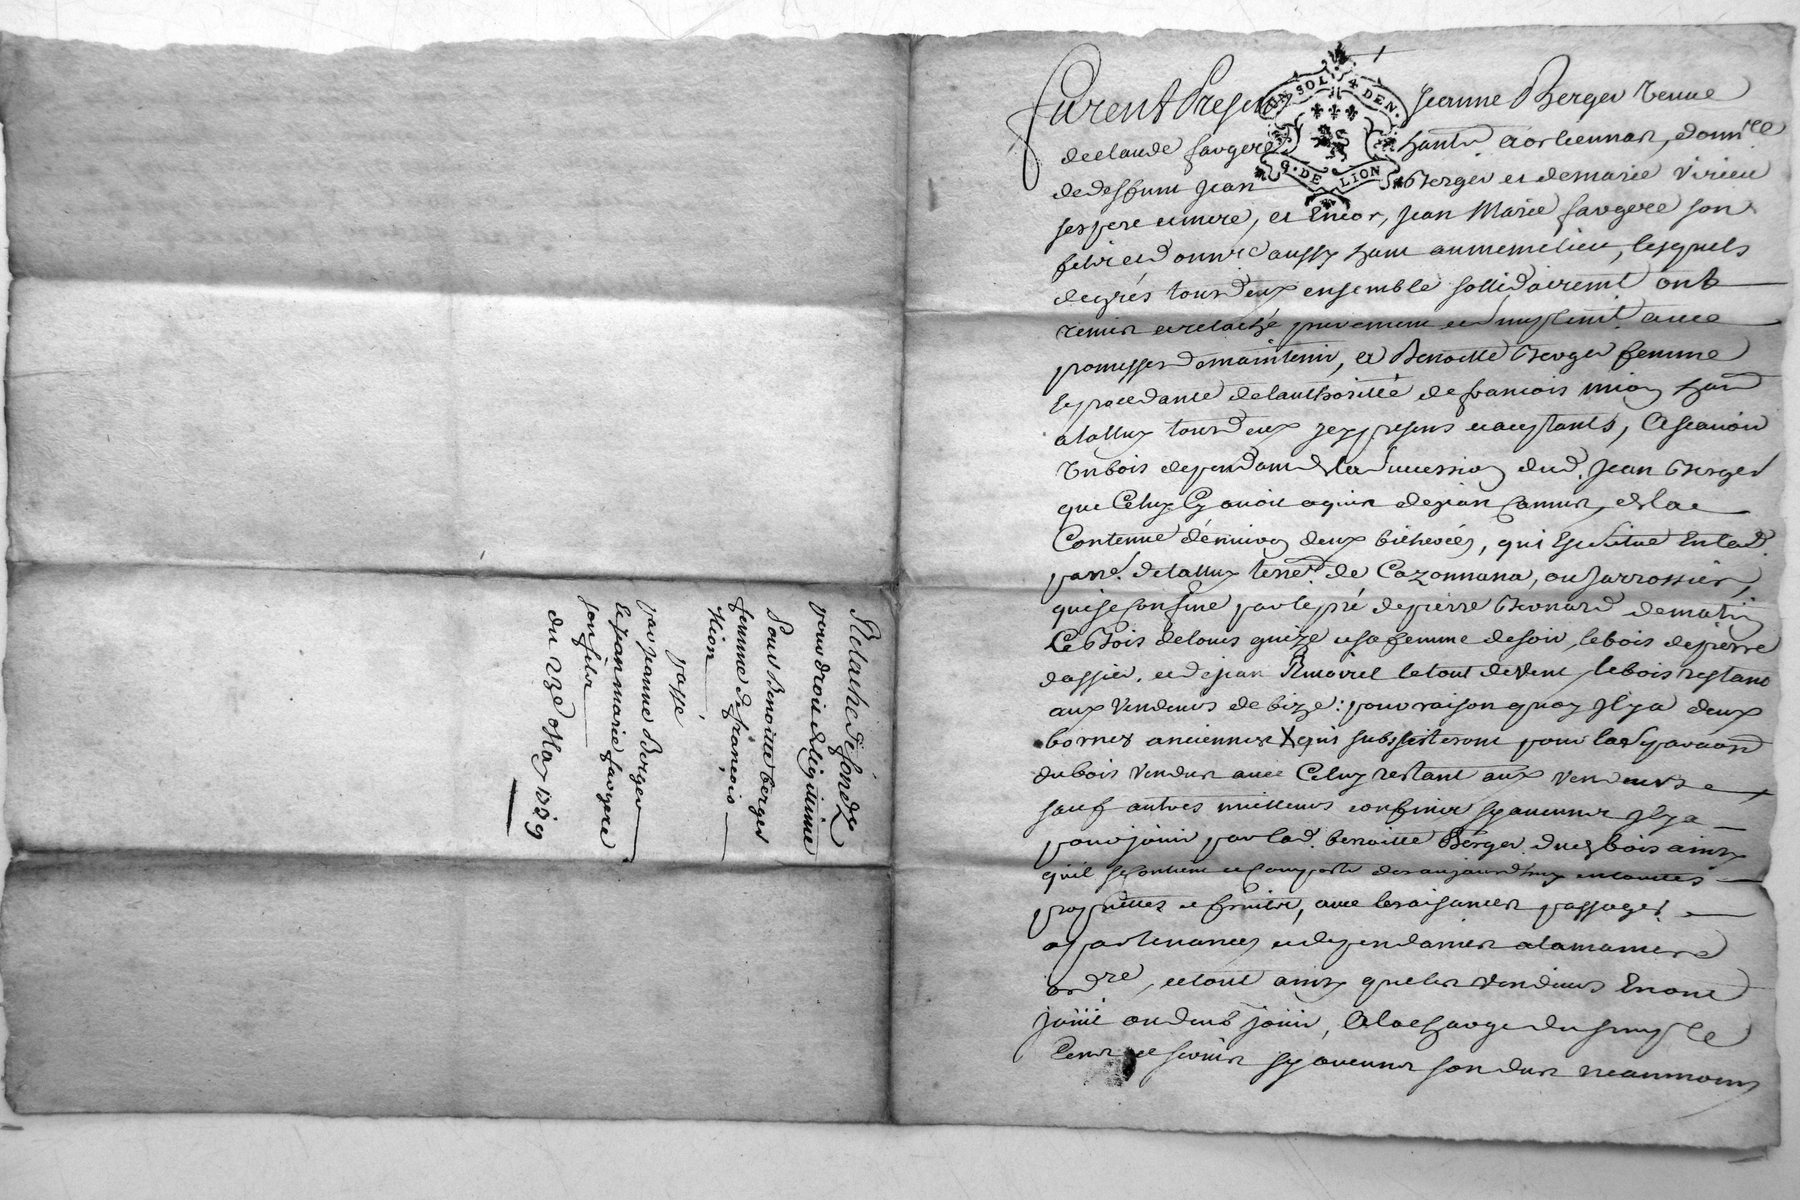 Relache de fondz
pour droit de legitime
Pour Benoitte berger
femme de françois
Mion
passé
par jeanne Berger
le jean marie faugere
son fils
du 23e May 1729
UN SOL 4 DEN.
G. DE LION
furent Presens Jeanne Berger veuve
de claude faugere hante a orliennas, donnee
de deffunt jean Berger et de marie virieu
ses pere et mere, et Encor, jean Marie faugere son
fils et donnee aussy hant au meme lieu, lesquels
de grés tous deux ensemble sollidairemt ont
remis et relaché purement et simplemt avec
promesses de maintenir, a Benoitte Berger femme
procedante de lauthorité de francois mion hant
a tallux tous deux icy presens et acceptants, A scavoir
Un bois dependant de la succession dud. jean Berger
que Celuy Cy avoit aquis de jean Camus, de la
Contenue denviron deux bicherées, qui Est situé En lad.
parr. de tallux terre. de Cazonnana, ou jarrossier,
qui se confine par le pré de pierre Bernard de matin
Le Bois de louis guize et sa femme de soir, le bois de pierre
dassier, et de jean le tout de vent, le bois restant
aux Vendeurs de bize: pour raison quoy Il y a deux
bornes anciennes X qui subsisteront pour la separaon
du bois vendus avec Celuy restant aux vendeurs
sauf autres meilleurs confins sy aucuns Il y a
pour jouir par lad. benoitte Berger dud. bois ainsy
quil se contient et comporte des aujourdhuy en toutes
proprietes et fruits, avec les aisances passages
apartenances et dependances a la maniere
ordre, et tout ainsy que les vendeurs En ont
joui ou deub jouir, A la charge du simple
Cens et servis sy aucuns son dus neanmoins